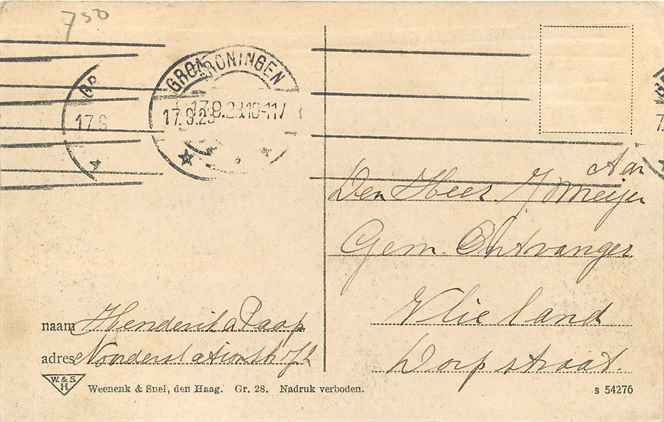 750
GRONINGEN
17.9.23 10-11V
Aan
Den Heer J Meijer
Gem. Ontvanger
Vlieland
Dorpstraat.
naam Henderika Raap
adres Noorderstationstr
W. & S. H.
Weenenk & Snel, den Haag. Gr. 28. Nadruk verboden.
s 54276